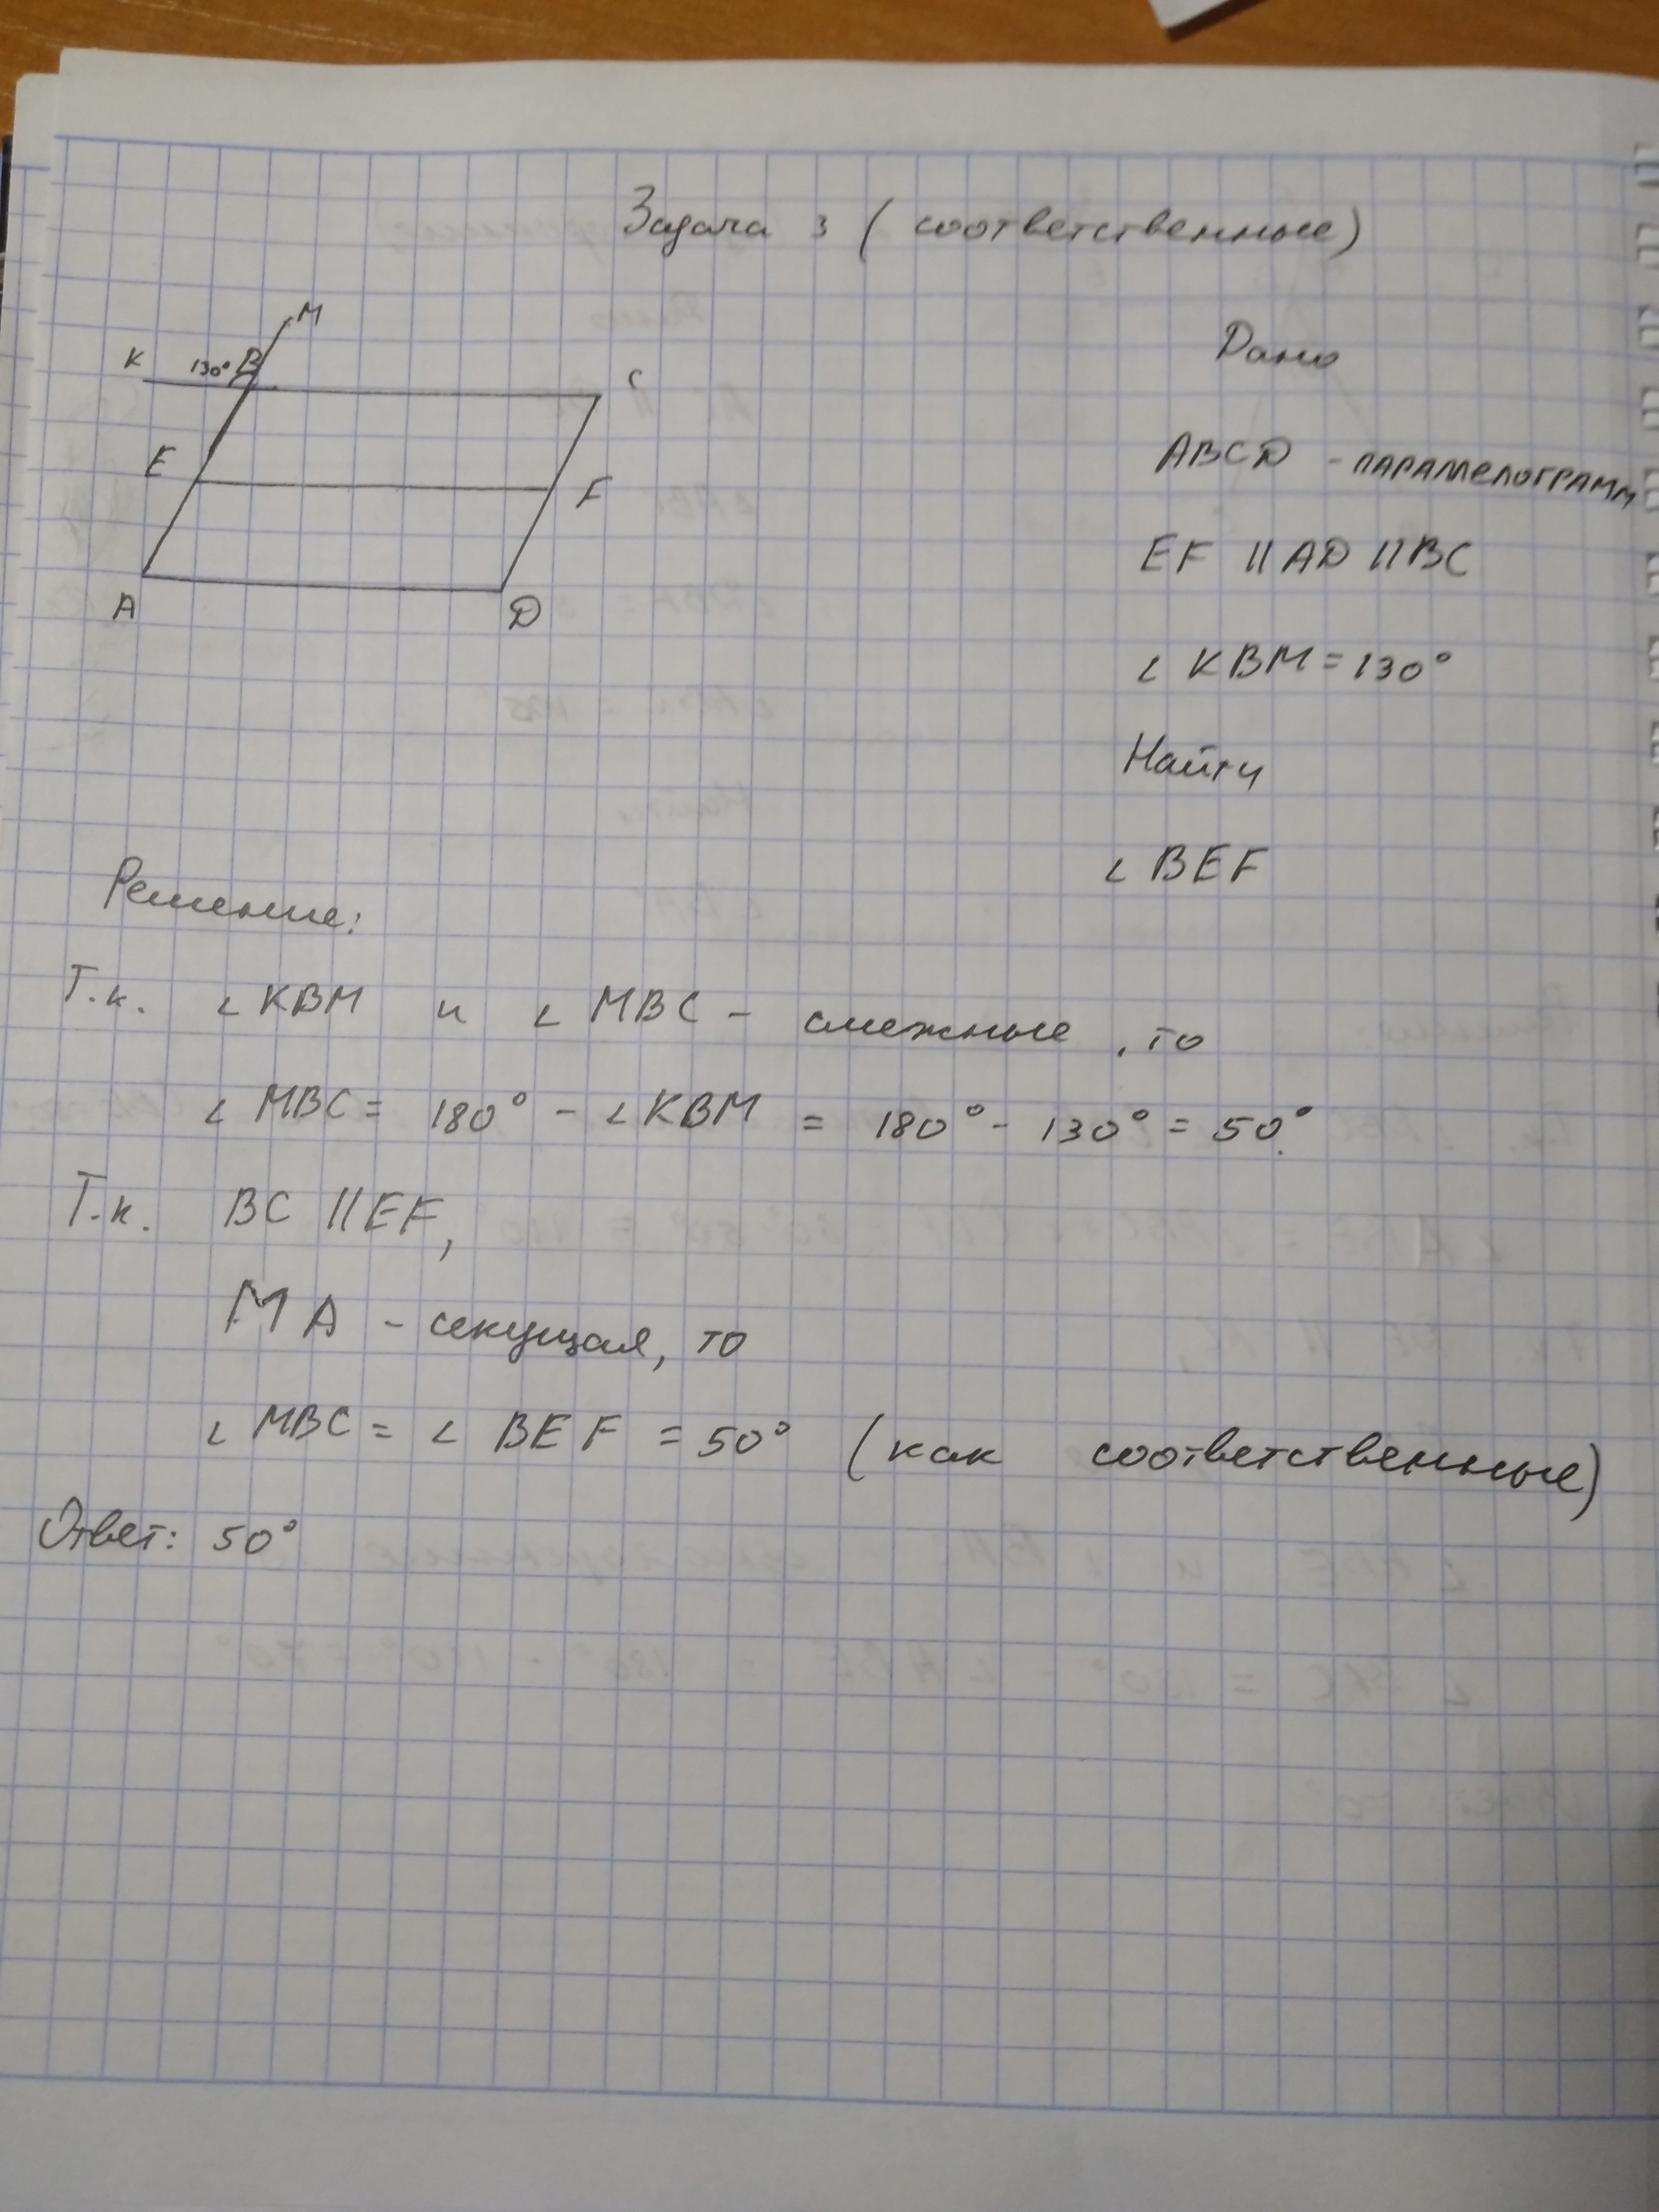 Задача 3 (соответственные)
M
K 130° B C
E F
A D
Дано
ABCD - параллелограмм
EF || AD || BC
∠ KBM = 130°
Найти
∠ BEF
Решение:
Т.к. ∠ KBM и ∠ MBC - смежные, то
∠ MBC = 180° - ∠ KBM = 180° - 130° = 50°.
Т.к. BC || EF,
MA - секущая, то
∠ MBC = ∠ BEF = 50° (как соответственные)
Ответ: 50°